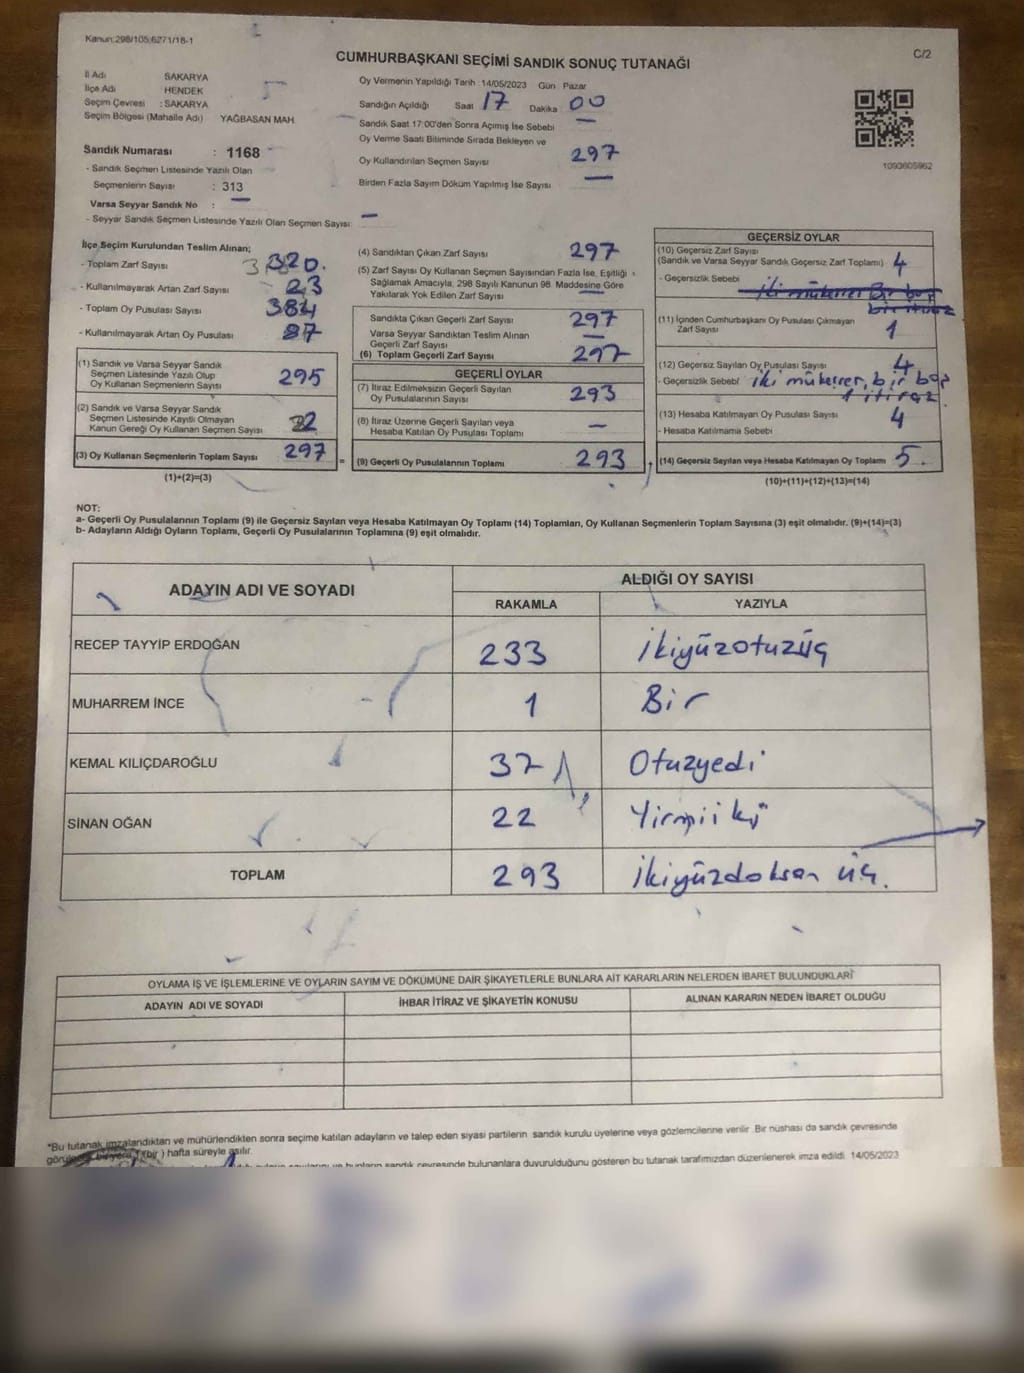 Kanun:298/105;6271/18-1
C/2
CUMHURBAŞKANI SEÇİMİ SANDIK SONUÇ TUTANAĞI
İl Adı SAKARYA
İlçe Adı HENDEK
Seçim Çevresi : SAKARYA
Seçim Bölgesi (Mahalle Adı) YAĞBASAN MAH.
Sandık Numarası : 1168
- Sandık Seçmen Listesinde Yazılı Olan
Seçmenlerin Sayısı : 313
Varsa Seyyar Sandık No : —
- Seyyar Sandık Seçmen Listesinde Yazılı Olan Seçmen Sayısı: —
Oy Vermenin Yapıldığı Tarih : 14/05/2023 Gün Pazar
Sandığın Açıldığı Saat 17 Dakika 00
Sandık Saat 17:00'den Sonra Açımış İse Sebebi —
Oy Verme Saati Bitiminde Sırada Bekleyen ve
Oy Kullandırılan Seçmen Sayısı 297
Birden Fazla Sayım Döküm Yapılmış İse Sayısı —
1090605962
İlçe Seçim Kurulundan Teslim Alınan;
- Toplam Zarf Sayısı 320.
- Kullanılmayarak Artan Zarf Sayısı 23
- Toplam Oy Pusulası Sayısı 384
- Kullanılmayarak Artan Oy Pusulası 87
(1) Sandık ve Varsa Seyyar Sandık
Seçmen Listesinde Yazılı Olup
Oy Kullanan Seçmenlerin Sayısı 295
(2) Sandık ve Varsa Seyyar Sandık
Seçmen Listesinde Kayıtlı Olmayan
Kanun Gereği Oy Kullanan Seçmen Sayısı 2
(3) Oy Kullanan Seçmenlerin Toplam Sayısı 297
(1)+(2)=(3)
(4) Sandıktan Çıkan Zarf Sayısı 297
(5) Zarf Sayısı Oy Kullanan Seçmen Sayısından Fazla İse, Eşitliği
Sağlamak Amacıyla, 298 Sayılı Kanunun 98. Maddesine Göre
Yakılarak Yok Edilen Zarf Sayısı —
Sandıkta Çıkan Geçerli Zarf Sayısı 297
Varsa Seyyar Sandıktan Teslim Alınan
Geçerli Zarf Sayısı —
(6) Toplam Geçerli Zarf Sayısı 297
GEÇERLİ OYLAR
(7) İtiraz Edilmeksizin Geçerli Sayılan
Oy Pusulalarının Sayısı 293
(8) İtiraz Üzerine Geçerli Sayılan veya
Hesaba Katılan Oy Pusulası Toplamı —
(9) Geçerli Oy Pusulalarının Toplamı 293
GEÇERSİZ OYLAR
(10) Geçersiz Zarf Sayısı
(Sandık ve Varsa Seyyar Sandık Geçersiz Zarf Toplamı) 4
- Geçersizlik Sebebi iki mükerrer Bir boş
bir itiraz
(11) İçinden Cumhurbaşkanı Oy Pusulası Çıkmayan
Zarf Sayısı 1
(12) Geçersiz Sayılan Oy Pusulası Sayısı 4
- Geçersizlik Sebebi iki mükerrer, bir boş
1 itiraz.
(13) Hesaba Katılmayan Oy Pusulası Sayısı 4
- Hesaba Katılmama Sebebi
(14) Geçersiz Sayılan veya Hesaba Katılmayan Oy Toplamı 5.
(10)+(11)+(12)+(13)=(14)
NOT:
a- Geçerli Oy Pusulalarının Toplamı (9) ile Geçersiz Sayılan veya Hesaba Katılmayan Oy Toplamı (14) Toplamları, Oy Kullanan Seçmenlerin Toplam Sayısına (3) eşit olmalıdır. (9)+(14)=(3)
b- Adayların Aldığı Oyların Toplamı, Geçerli Oy Pusulalarının Toplamına (9) eşit olmalıdır.
ADAYIN ADI VE SOYADI
ALDIĞI OY SAYISI
RAKAMLA YAZIYLA
RECEP TAYYİP ERDOĞAN 233 ikiyüzotuzüç
MUHARREM İNCE 1 Bir
KEMAL KILIÇDAROĞLU 37 Otuzyedi
SİNAN OĞAN 22 Yirmiiki
TOPLAM 293 ikiyüzdoksan üç.
OYLAMA İŞ VE İŞLEMLERİNE VE OYLARIN SAYIM VE DÖKÜMÜNE DAİR ŞİKAYETLERLE BUNLARA AİT KARARLARIN NELERDEN İBARET BULUNDUKLARI
ADAYIN ADI VE SOYADI İHBAR İTİRAZ VE ŞİKAYETİN KONUSU ALINAN KARARIN NEDEN İBARET OLDUĞU
*Bu tutanak imzalandıktan ve mühürlendikten sonra seçime katılan adayların ve talep eden siyasi partilerin sandık kurulu üyelerine veya gözlemcilerine verilir. Bir nüshası da sandık çevresinde
bir yere 1 (bir ) hafta süreyle asılır.
ve bunların sandık çevresinde bulunanlara duyurulduğunu gösteren bu tutanak tarafımızdan düzenlenerek imza edildi. 14/05/2023